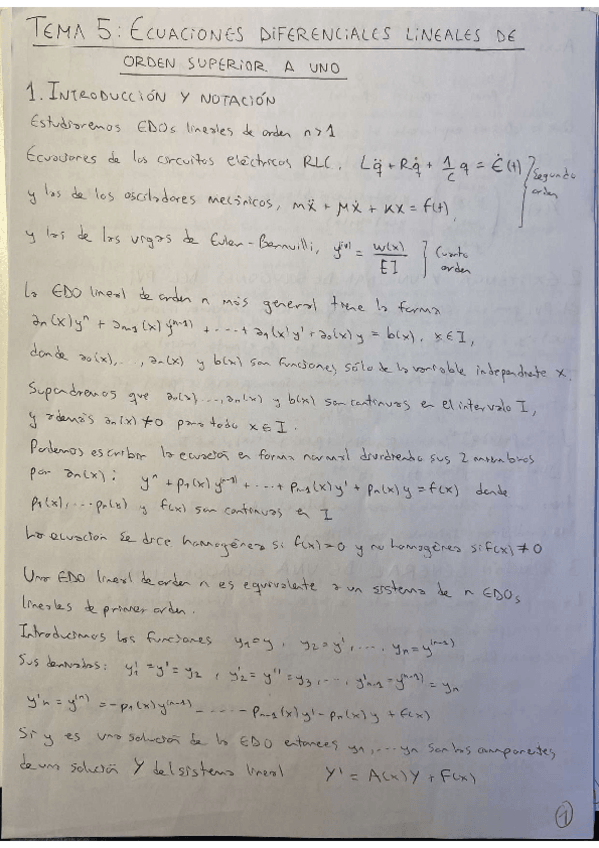 TEMA 5: ECUACIONES DIFERENCIALES LINEALES DE
ORDEN SUPERIOR A UNO
1. INTRODUCCIÓN Y NOTACIÓN
Estudiaremos EDOs lineales de orden n>1
Ecuaciones de los circuitos eléctricos RLC, Lq̈ + Rq̇ + 1/C q = Ė(t) } Segundo orden
y las de los osciladores mecánicos, mẍ + μẋ + Kx = f(t),
y las de las vigas de Euler-Bernuilli, y⁽ⁱᵛ⁾ = W(x)/EI } Cuarto orden
La EDO lineal de orden n más general tiene la forma
aₙ(x)yⁿ + aₙ₋₁(x)y⁽ⁿ⁻¹⁾ + ... + a₁(x)y' + a₀(x)y = b(x), x∈I,
donde a₀(x),..., aₙ(x) y b(x) son funciones sólo de la variable independiente x.
Supondremos que a₀(x),..., aₙ(x) y b(x) son continuas en el intervalo I,
y además aₙ(x) ≠ 0 para todo x∈I.
Podemos escribir la ecuación en forma normal dividiendo sus 2 miembros
por aₙ(x): yⁿ + p₁(x)y⁽ⁿ⁻¹⁾ + ... + pₙ₋₁(x)y' + pₙ(x)y = f(x) donde
p₁(x),... pₙ(x) y f(x) son continuas en I
La ecuación se dice homogénea si f(x)=0 y no homogénea si f(x) ≠ 0
Una EDO lineal de orden n es equivalente a un sistema de n EDOs
lineales de primer orden.
Introducimos las funciones y₁=y, y₂=y', ..., yₙ=y⁽ⁿ⁻¹⁾
Sus derivadas: y'₁=y'=y₂, y'₂=y''=y₃,..., y'ₙ₋₁=y⁽ⁿ⁻¹⁾=yₙ
y'ₙ=y⁽ⁿ⁾=-p₁(x)y⁽ⁿ⁻¹⁾-...-pₙ₋₁(x)y'-pₙ(x)y+f(x)
Si y es una solución de la EDO entonces y₁,...yₙ son las componentes
de una solución Y del sistema lineal Y' = A(x)Y + F(x)
1